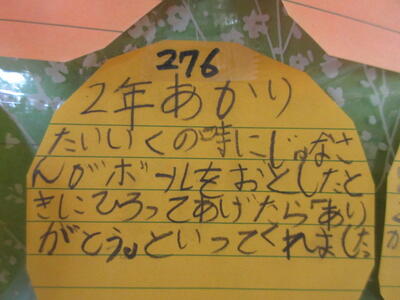 276
2年あかり
たいいくの時にじゅなさ
んがボールをおとしたと
きにひろってあげたら「あり
がとう。」といってくれました。